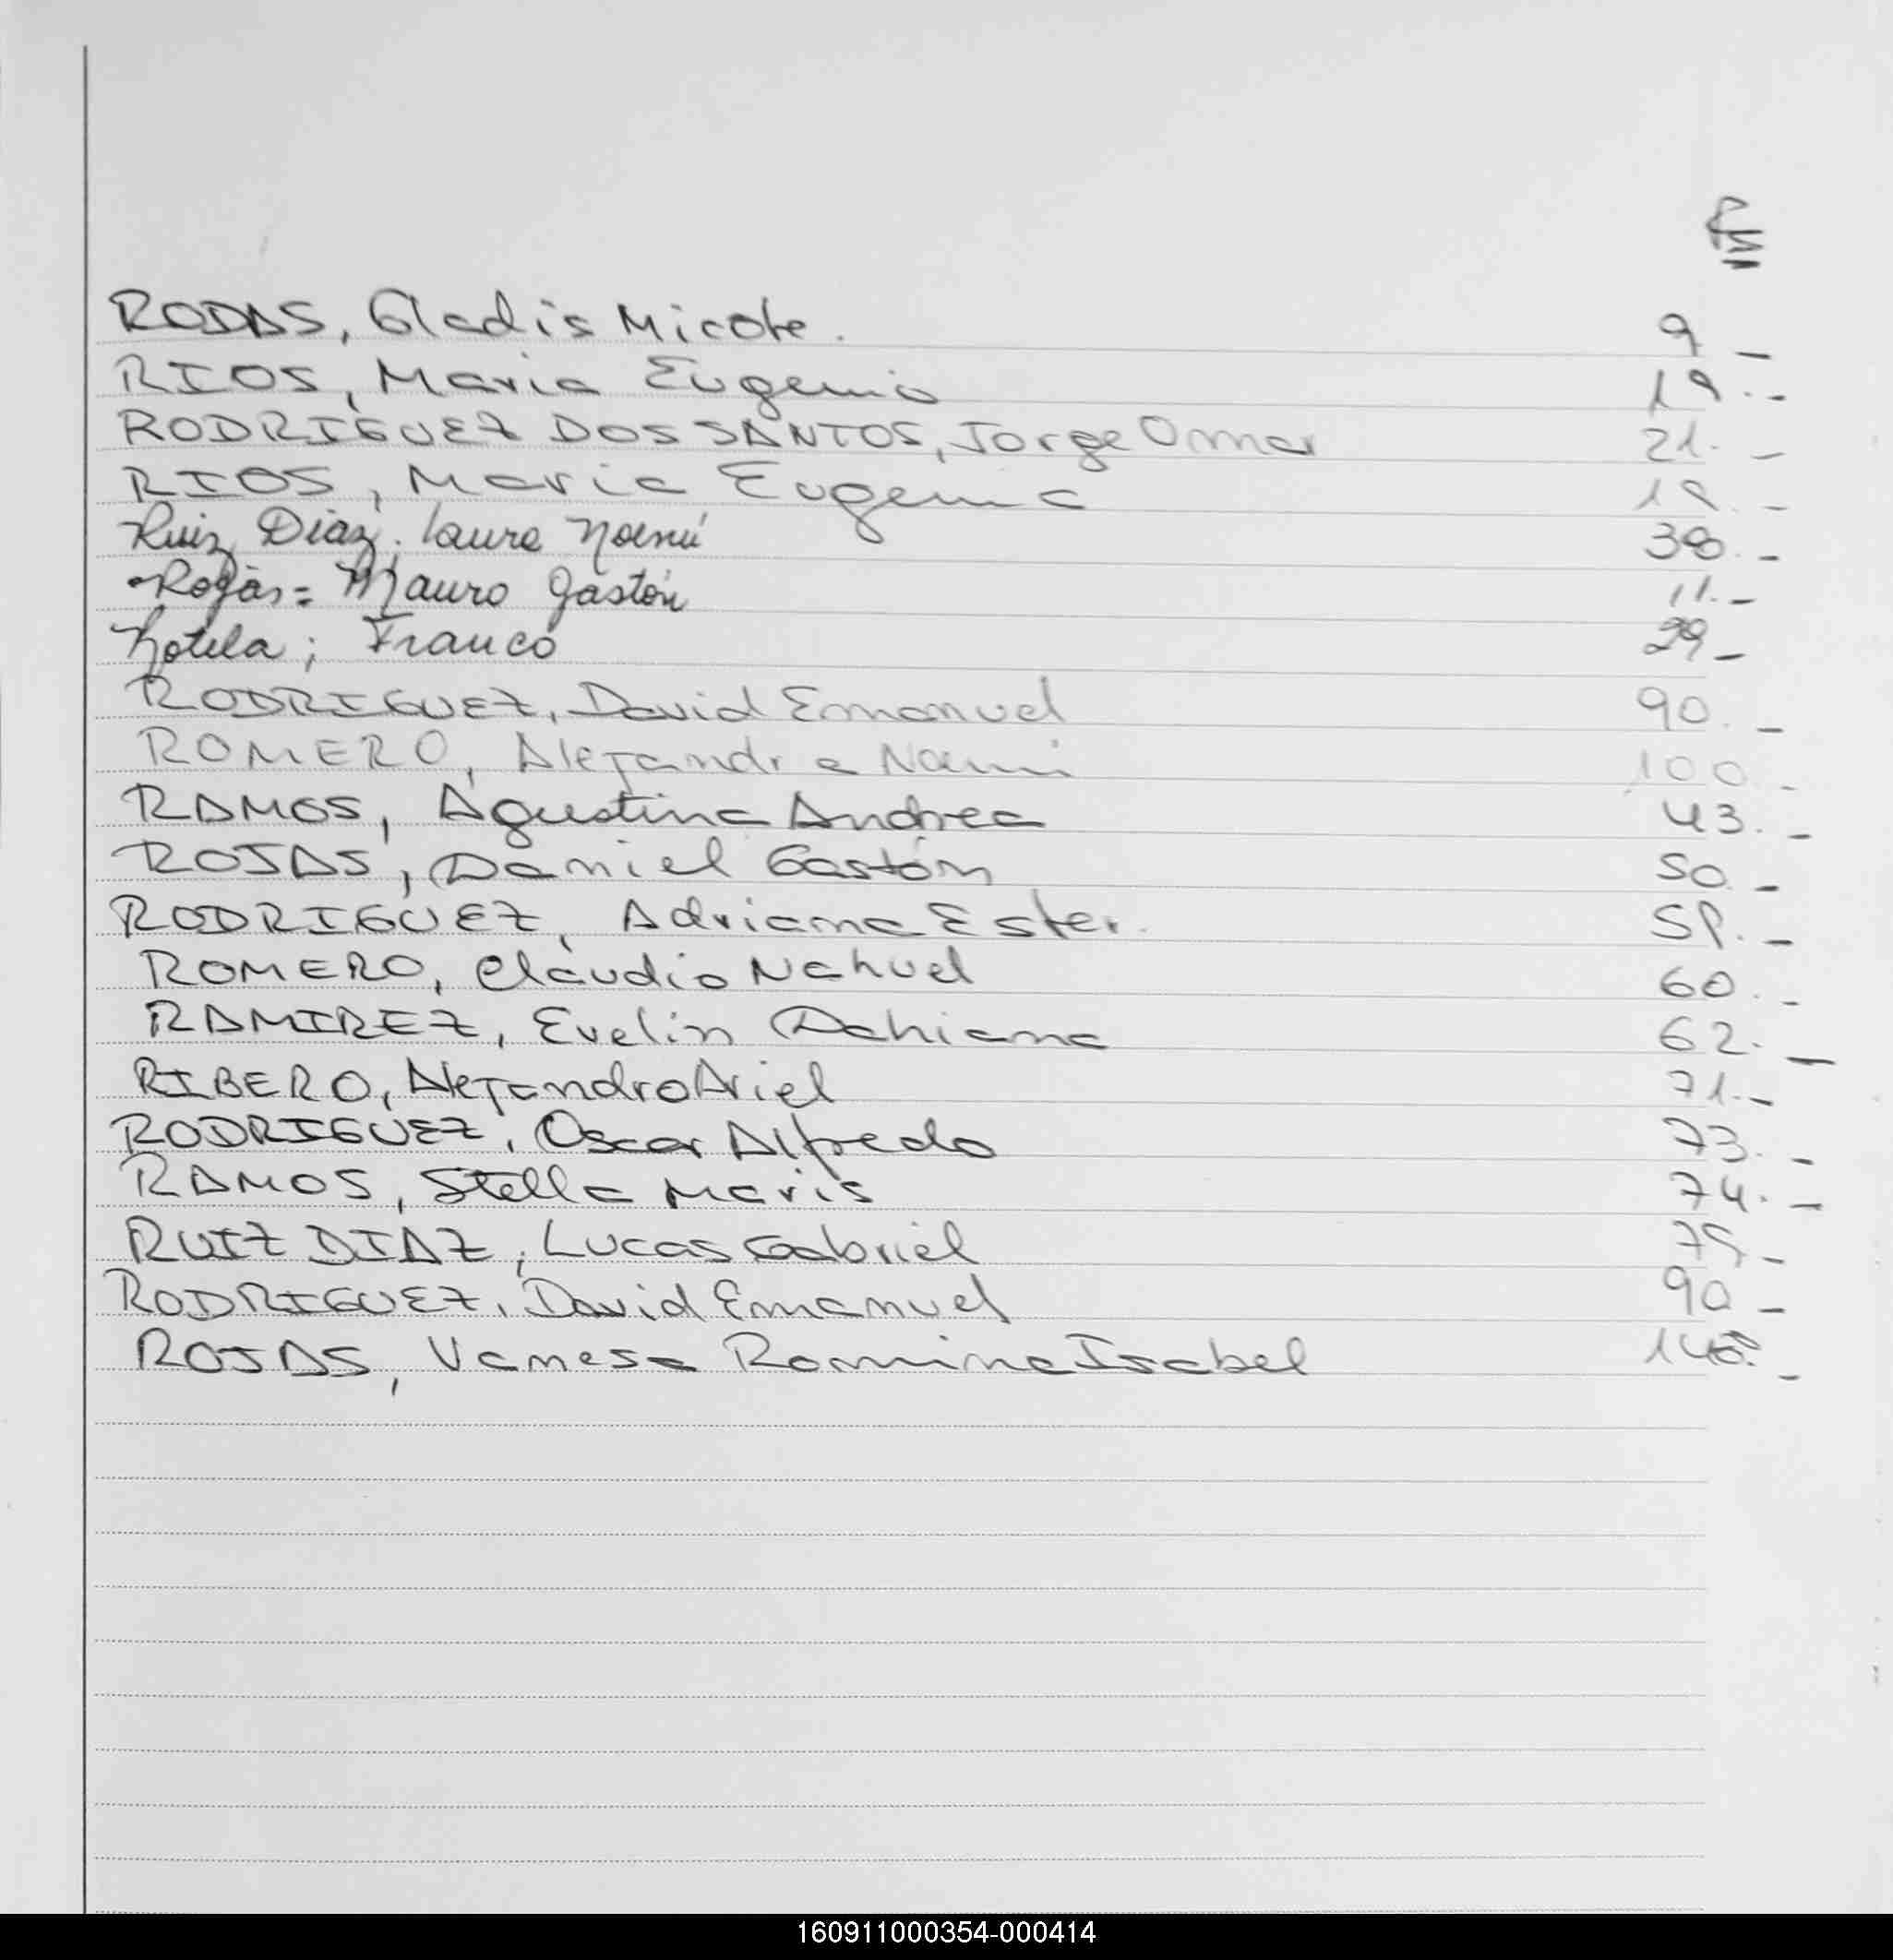 Fº
RODAS, Gladis Micole. 9 _
RIOS, Maria Eugenia 19.-
RODRIGUEZ DOS SANTOS, Jorge Omar 21. _
RIOS, Maria Eugenia 19. _
Ruiz Diaz. Laura Noemí 38. _
Rojas = Mauro Gastón 11. _
Rotela; Franco 29 _
RODRIGUEZ, David Emanuel 90. _
ROMERO, Alejandra Noemi 100 _
RAMOS, Agustina Andrea 43. _
ROJAS, Daniel Gastón 50. _
RODRIGUEZ, Adriana Ester. _
ROMERO, Claudio Nahuel 60. _
RAMIREZ, Evelin Dahiana 62. _
RIBERO, Alejandro Ariel 71. _
RODRIGUEZ, Oscar Alfredo 73. _
RAMOS, Stella Maris 74. _
RUIZ DIAZ, Lucas Gabriel 75 _
RODRIGUEZ, David Emanuel 90 _
ROJAS, Vanesa Romina Isabel _
160911000354-000414